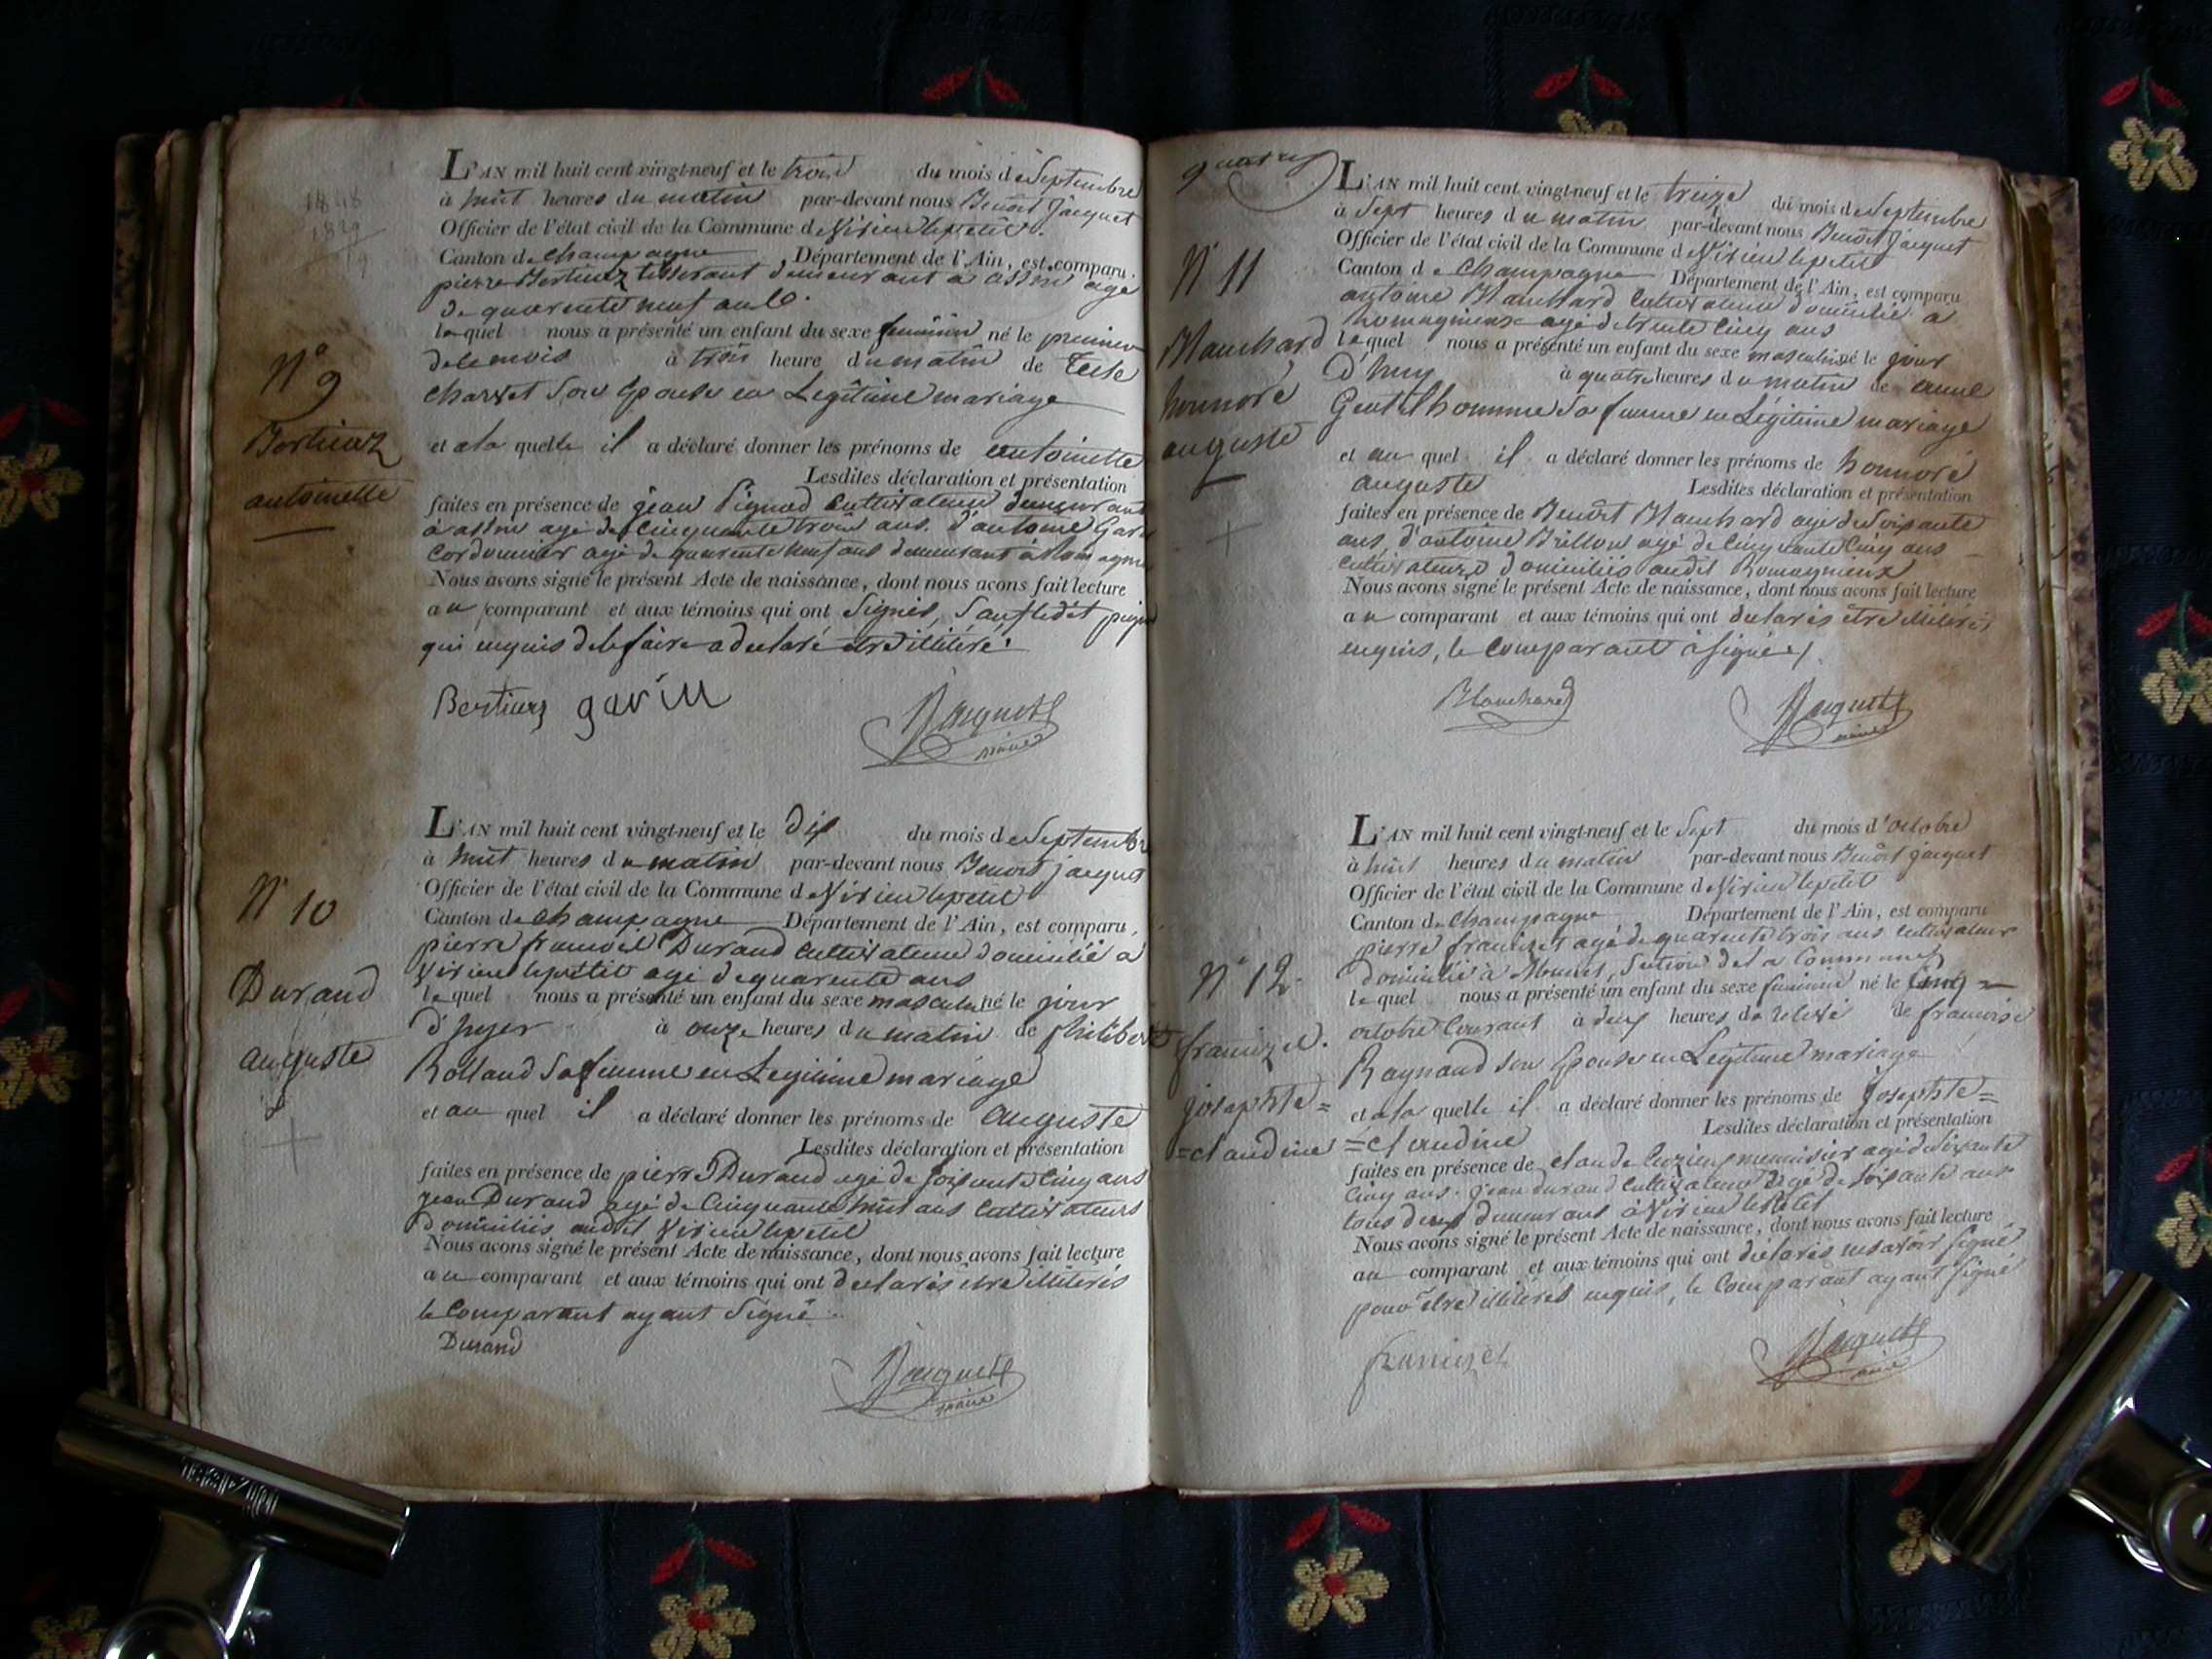 1829
L'AN mil huit cent vingt-neuf et le trois du mois de Septembre
à huit heures du matin par-devant nous Benoit jacquet
Officier de l'état civil de la Commune de Virieu lepetit.
Canton de champagne Département de l'Ain, est comparu.
pierre tisserant demeurant a assin agé
de quarente neuf ans.
lequel nous a présenté un enfant du sexe feminin né le premier
de ce mois à trois heure du matin de
charvet son Epouse en Legitime mariage
et a la quelle il a déclaré donner les prénoms de antoinette
Lesdites déclaration et présentation
faites en présence de jean cultivateur demeurant
à assin agé de cinquante trois ans. d'antoine
Cordonnier agé de quarente neuf ans demeurant à
Nous avons signé le présent Acte de naissance, dont nous avons fait lecture
au comparant et aux témoins qui ont signés, sauf ledit
qui enquis de le faire a declaré etre illitéré.
Jacquet
maire
N° 9
antoinette
L'AN mil huit cent vingt-neuf et le dix du mois de Septembre
à huit heures du matin par-devant nous Benoit jacquet
Officier de l'état civil de la Commune de Virieu lepetit
Canton de champagne Département de l'Ain, est comparu,
pierre françois Durand cultivateur domicilié a
Virieu lepetit agé de quarente ans
lequel nous a présenté un enfant du sexe masculin né le jour
d'hyer à onze heures du matin de philiberte
Rolland sa femme en Legitime mariage
et au quel il a déclaré donner les prénoms de auguste
Lesdites déclaration et présentation
faites en présence de pierre Durand agé de soixante cinq ans
jean Durand agé de cinquante huit ans cultivateurs
domiciliés audit Virieu lepetit
Nous avons signé le présent Acte de naissance, dont nous avons fait lecture
au comparant et aux témoins qui ont declarés être illitérés
le comparant ayant signé
Durand
Jacquet
maire
N° 10
Durand
auguste
L'AN mil huit cent vingt-neuf et le treize du mois de Septembre
à Sept heures du matin par-devant nous Benoit jacquet
Officier de l'état civil de la Commune de Virieu lepetit
Canton de Champagne Département de l'Ain, est comparu
antoine Blanchard cultivateur domicilié a
Romagnieux agé de trente cinq ans
lequel nous a présenté un enfant du sexe masculin né le jour
d'huy à quatre heures du matin de anne
Gentilhomme sa femme en Légitime mariage
et au quel il a déclaré donner les prénoms de honnoré
auguste Lesdites déclaration et présentation
faites en présence de Benoit Blanchard agé de soixante
ans, d'antoine Brillon agé de cinquante cinq ans
cultivateurs domiciliés audit Romagnieux
Nous avons signé le présent Acte de naissance, dont nous avons fait lecture
au comparant et aux témoins qui ont declarés être illitérés
enquis, le comparant à signé
Blanchard
Jacquet
maire
N° 11
Blanchard
honnoré
auguste
L'AN mil huit cent vingt-neuf et le Sept du mois d'octobre
à huit heures du matin par-devant nous Benoit jacquet
Officier de l'état civil de la Commune de Virieu lepetit
Canton de Champagne Département de l'Ain, est comparu
pierre agé de quarente trois ans cultivateur
domicilié à Munet, Section de la Commune
lequel nous a présenté un enfant du sexe feminin né le cinq
octobre courant à deux heures de relevé de françoise
Raynaud son Epouse en Legitime mariage
et a la quelle il a déclaré donner les prénoms de josephte=
=claudine Lesdites déclaration et présentation
faites en présence de claude menuisier agé de soixante
cinq ans. jean durand cultivateur agé de soixante ans
tous deux demeurant à Virieu lepetit
Nous avons signé le présent Acte de naissance, dont nous avons fait lecture
au comparant et aux témoins qui ont déclarés ne savoir signé
pour etre illitérés enquis, le comparant ayant signé
Jacquet
maire
N° 12
josephte=
=claudine